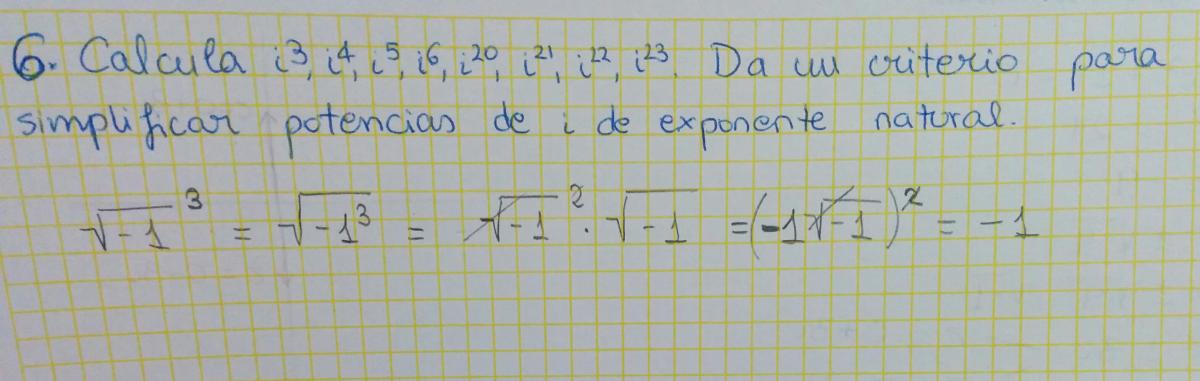 6. Calcula i³, i⁴, i⁵, i⁶, i²⁰, i²¹, i²², i²³. Da un criterio para
simplificar potencias de i de exponente natural.
√-1 ³ = √-1³ = √-1 ² · √-1 = (-1√-1)² = -1